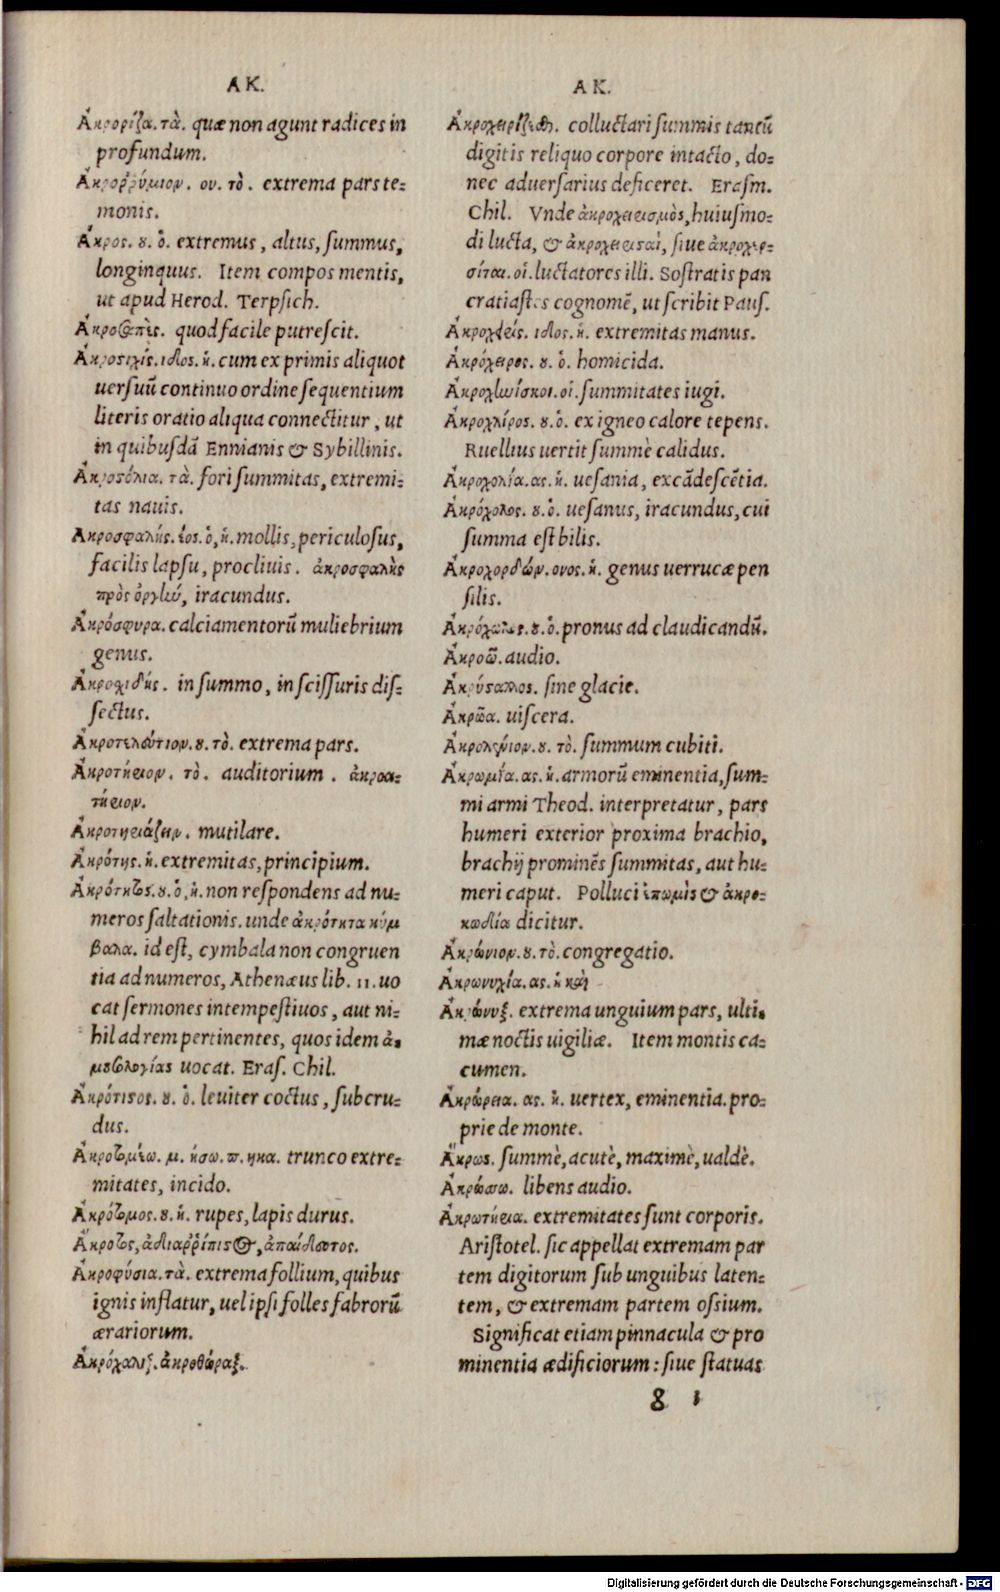 ΑΚ.
Ἀκρορίζα. τὰ. quæ non agunt radices in
profundum.
Ἀκροῤῥύμιον. ου. τὸ. extrema pars te-
monis.
Ἄκρος. ȣ. ὁ. extremus, altus, summus,
longinquus. Item compos mentis,
ut apud Herod. Terpsich.
Ἀκροσαπὶς. quod facile putrescit.
Ἀκροστιχίς. ιδος. ἡ. cum ex primis aliquot
uersuū continuo ordine sequentium
literis oratio aliqua connectitur, ut
in quibusdā Ennianis & Sybillinis.
Ἀκροστόλια. τὰ. fori summitas, extremi-
tas nauis.
Ἀκροσφαλής. έος. ὁ, ἡ. mollis, periculosus,
facilis lapsu, procliuis. ἀκροσφαλὴς
πρὸς ὀργὴν, iracundus.
Ἀκρόσφυρα. calciamentorū muliebrium
genus.
Ἀκροσχιδής. in summo, in scissuris dis-
sectus.
Ἀκροτελεύτιον. ȣ. τὸ. extrema pars.
Ἀκροτήριον. τὸ. auditorium. ἀκροα-
τήριον.
Ἀκροτηριάζειν. mutilare.
Ἀκρότης. ἡ. extremitas, principium.
Ἀκρότητος. ȣ. ὁ, ἡ. non respondens ad nu-
meros saltationis. unde ἀκρότητα κύμ
βαλα. id est, cymbala non congruen
tia ad numeros, Athenæus lib. 11. uo
cat sermones intempestiuos, aut ni-
hil ad rem pertinentes, quos idem ἀ-
μετρολογίας uocat. Eras. Chil.
Ἀκρότιστος. ȣ. ὁ. leuiter coctus, subcru-
dus.
Ἀκροτομέω. μ. ήσω. π. ηκα. trunco extre-
mitates, incido.
Ἀκρότομος. ȣ. ἡ. rupes, lapis durus.
Ἄκροτος, ἀδιαῤῥίπιστος, ἀπαίδευτος.
Ἀκροφύσια. τὰ. extrema follium, quibus
ignis inflatur, uel ipsi folles fabrorū
ærariorum.
Ἀκρόχαλιξ. ἀκροθώραξ.
ΑΚ.
Ἀκροχειρίζεσθαι. colluctari summis tantū
digitis reliquo corpore intacto, do-
nec aduersarius deficeret. Erasm.
Chil. Vnde ἀκροχειρισμὸς, huiusmo-
di lucta, & ἀκροχειρισταὶ, siue ἀκροχερ-
σίται. οἱ. luctatores illi. Sostratis pan
cratiastes cognomē, ut scribit Paus.
Ἀκροχερίς. ιδος. ἡ. extremitas manus.
Ἀκρόχειρος. ȣ. ὁ. homicida.
Ἀκροχηνίσκοι. οἱ. summitates iugi.
Ἀκροχλίρος. ȣ. ὁ. ex igneo calore tepens.
Ruellius uertit summè calidus.
Ἀκροχολία. ας. ἡ. uesania, excādescētia.
Ἀκρόχολος. ȣ. ὁ. uesanus, iracundus, cui
summa est bilis.
Ἀκροχορδών. ονος. ἡ. genus uerrucæ pen
silis.
Ἀκρόχωλος. ȣ. ὁ. pronus ad claudicandū.
Ἀκροῶ. audio.
Ἀκρύσταλλος. sine glacie.
Ἀκρῶα. uiscera.
Ἀκρολένιον. ȣ. τὸ. summum cubiti.
Ἀκρωμία. ας. ἡ. armorū eminentia, sum-
mi armi Theod. interpretatur, pars
humeri exterior proxima brachio,
brachij prominēs summitas, aut hu-
meri caput. Polluci ἐπωμὶς & ἀκρο-
κωλία dicitur.
Ἀκρώνιον. ȣ. τὸ. congregatio.
Ἀκρωνυχία. ας. ἡ καὶ
Ἀκρώνυξ. extrema unguium pars, ulti-
mæ noctis uigiliæ. Item montis ca-
cumen.
Ἀκρώρεια. ας. ἡ. uertex, eminentia. pro-
prie de monte.
Ἄκρως. summè, acutè, maximè, ualdè.
Ἀκρώσω. libens audio.
Ἀκρωτήρια. extremitates sunt corporis.
Aristotel. sic appellat extremam par
tem digitorum sub unguibus laten-
tem, & extremam partem ossium.
Significat etiam pinnacula & pro
minentia ædificiorum: siue statuas
8 1
Digitalisierung gefördert durch die Deutsche Forschungsgemeinschaft - DFG